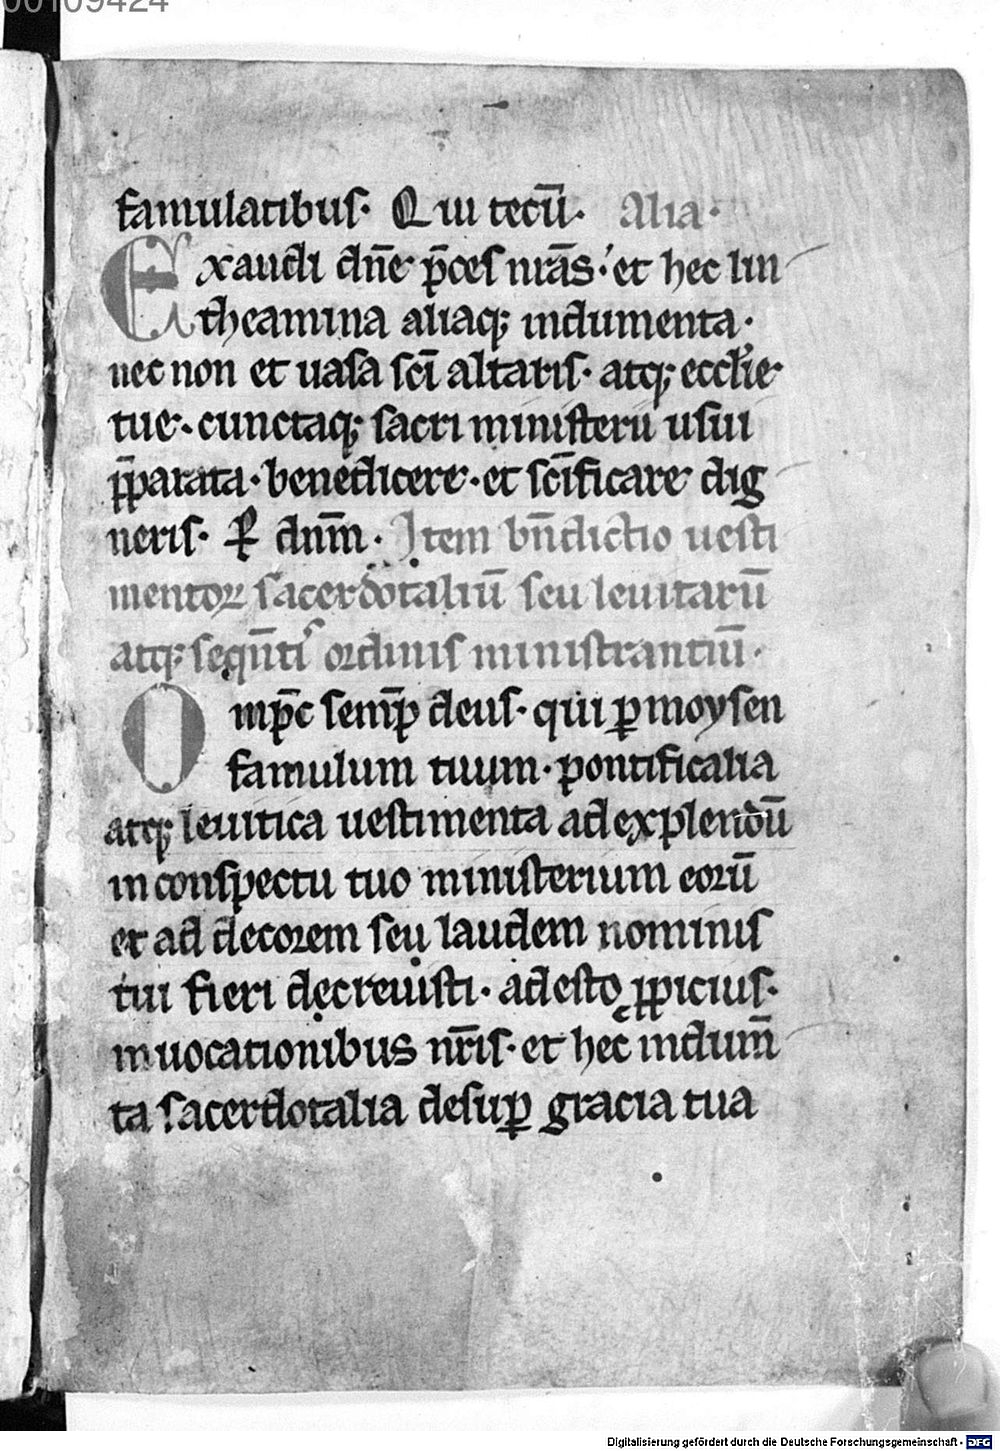 00109424
famulatibus· Qui tecū· Alia·
Exaudi dn̄e p̄ces nr̄as·' et hec lin
theamina aliaq; indumenta·
nec non et uasa sc̄i altaris· atq; eccl̄ie
tue· cunctaq; sacri ministerii usui
p̄parata· benedicere· et sc̄ificare dig
neris· P dn̄m· Item bn̄dictio uesti
mentoꝝ sacerdotaliū seu leuitarū
atq; seqn̄tis ordinis ministrantiū·
Omp̄c semp̄ deus· qui ꝑ moysen
famulum tuum· pontificalia
atq; leuitica uestimenta ad explendū
in conspectu tuo ministerium eorū
et ad decorem seu laudem nominis
tui fieri decreuisti· adesto ꝓpicius·
inuocationibus nr̄is· et hec indum̄
ta sacerdotalia desuꝑ gracia tua
Digitalisierung gefördert durch die Deutsche Forschungsgemeinschaft - DFG